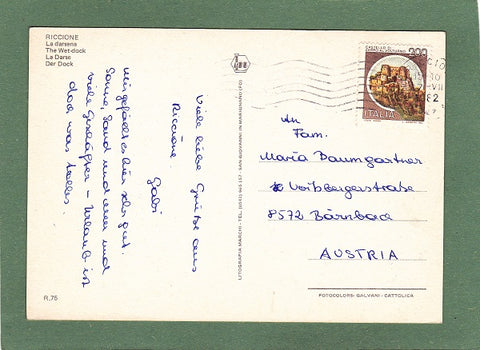 RICCIONE
La darsena
The Wet-dock
La Darse
Der Dock
Viele liebe Grüße aus
Riccione.
Gabi
mir gefällt es hier sehr gut.
Sonne, Sand und Meer und
viele Geschäfter – Urlaub ist
doch was tolles.
LITOGRAFIA MARCHI - TEL. (0541) 945.157 - SAN GIOVANNI IN MARIGNANO (FO)
200
ITALIA
82
An
Fam.
Maria Baumgartner
Voitsbergerstraße
8572 Bärnbach
AUSTRIA
R.75
FOTOCOLORS: GALVANI - CATTOLICA